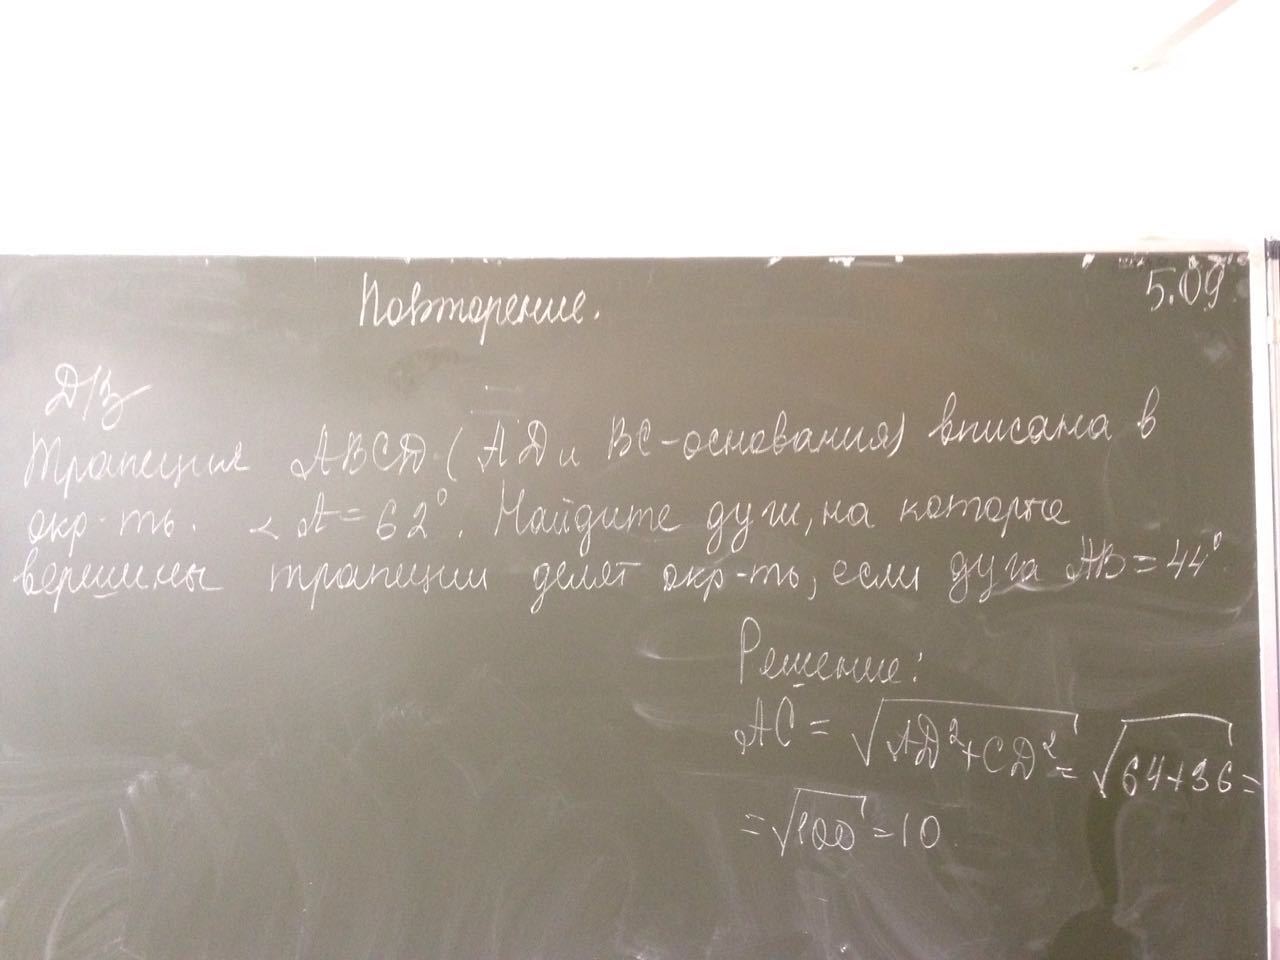 Повторение.
5.09
Д/з
Трапеция ABCD (AD и BC-основания) вписана в
окр-ть. < A = 62°. Найдите дуги, на которые
вершины трапеции делят окр-ть, если дуга AB = 44°
Решение:
AC = √AD²+CD² = √64+36 =
= √100 = 10